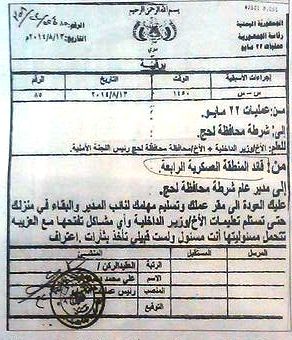 بسم الله الرحمن الرحيم
الجمهورية اليمنية
رئاسة الجمهورية
عمليات ٢٢ مايو
الرقم:
التاريخ: ٢٠١٤/٨/١٣
سري
برقية
إجراءات الأسبقية الوقت التاريخ الرقم
س – س ١٤٥٠ ٢٠١٤/٨/١٣ ٨٥
من: عمليات ٢٢ مايو.
إلى: شرطة محافظة لحج.
الأخ/وزير الداخلية = الأخ/محافظة محافظة لحج رئيس اللجنة الأمنية.
من: قائد المنطقة العسكرية الرابعة.
إلى مدير عام شرطة محافظة لحج.
عليك العودة الى مقر عملك وتسليم مهامك لنائب المدير والبقاء في منزلك
حتى تستلم تعليمات الأخ/وزير الداخلية وأي مشاكل تفتعلها مع العزيبه
تتحمل مسئوليتها أنت مسئول ولست قبيلي تأخذ بثارات. إعتراف
المرسل المستقبل المنشئ
الرتبة العقيد الركن /
الاسم علي محمد
المنصب رئيس عمليات
التوقيع